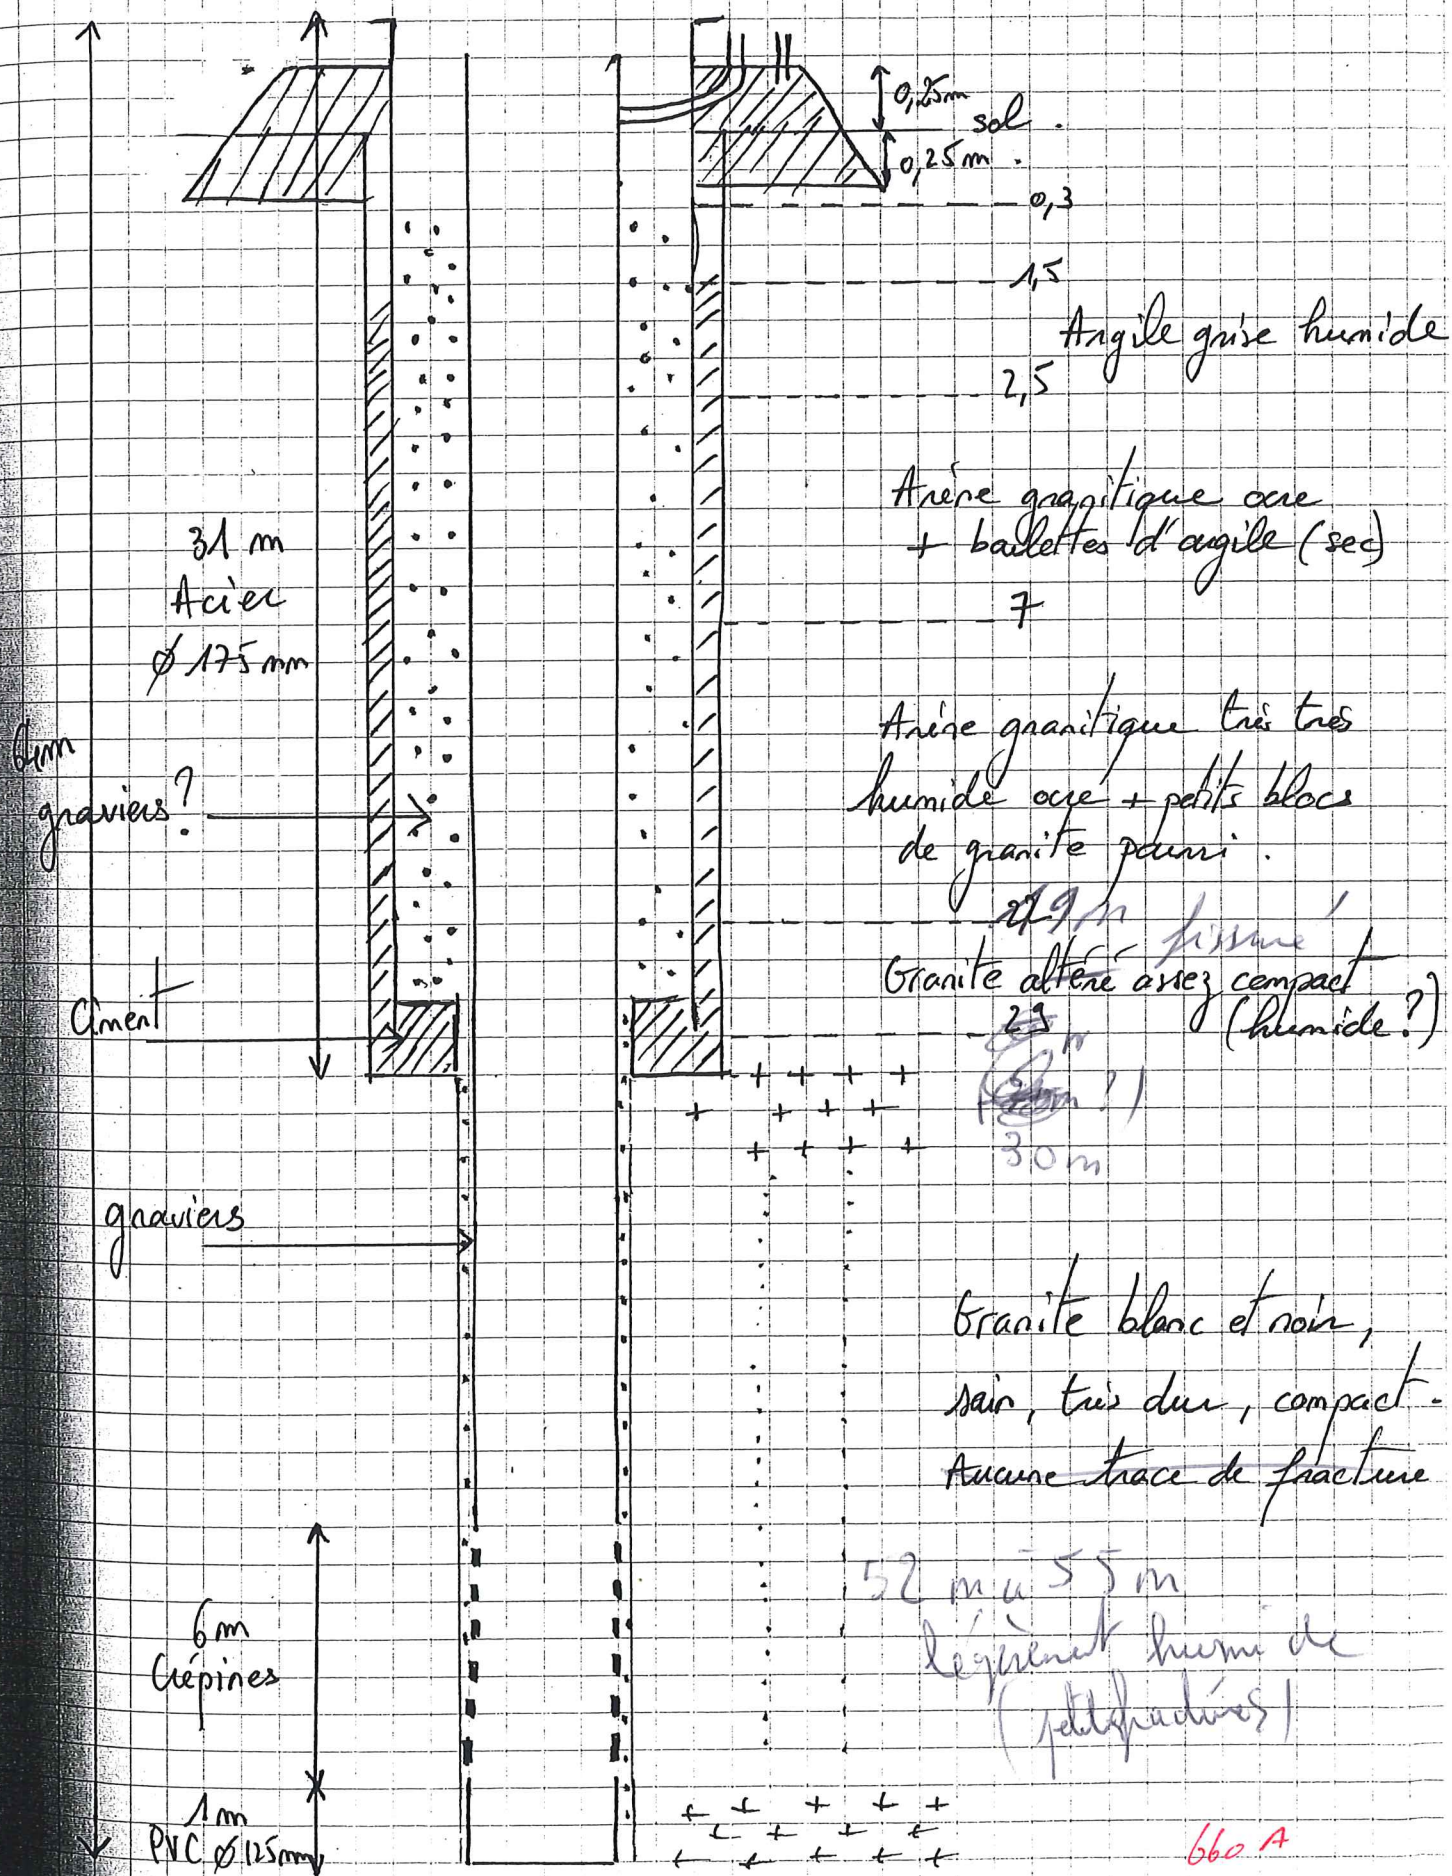 0,25m
sol.
0,25m.
0,3
1,5
Argile grise humide
2,5
Arène granitique ocre
+ boulettes d'argile (sec)
7
31 m
Acier
Ø 175 mm
Arène granitique très très
humide ocre + petits blocs
de granite pourri.
graviers?
19m fissuré
Granite altéré assez compact
29
(humide?)
Ciment
30m
graviers
Granite blanc et noir,
sain, très dur, compact.
Aucune trace de fracture
52 m à 55 m
légèrement humide
6m
Crépines
1m
PVC Ø 125mm
660 A